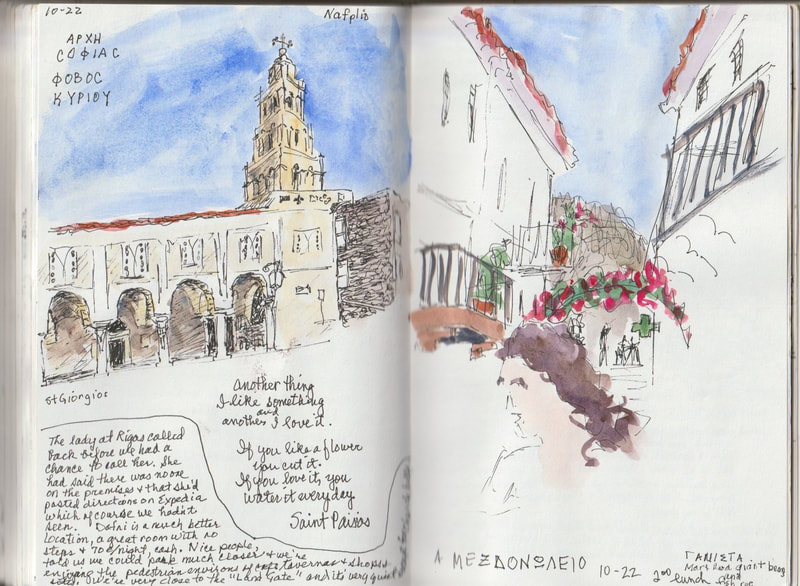 10-22
Nafplio
ΑΡΧΗ
ΣΟΦΙΑΣ
ΦΟΒΟΣ
ΚΥΡΙΟΥ
St Giorgios
Another thing
I like something
and
another I love it.
If you like a flower
you cut it.
If you love it, you
water it everyday
Saint Paisios
The lady at Rigas called
back before we had a
chance to call her. She
had said there was no one
on the premises & that she'd
posted directions on Expedia
which of course we hadn't
seen. Dafni is a much better
location, a great room with no
steps & 70€/night, cash. Nice people,
told us we could park much closer & we're
enjoying the pedestrian environs of cafe, tavernas & shops
We're very close to the "Land Gate" and its very quiet
Α ΜΕΖΔΟΝΩΛΕΙΟ
10-22
2⁰⁰ lunch
ΓΑΝΙΣΤΑ
Mark had giant beans
and